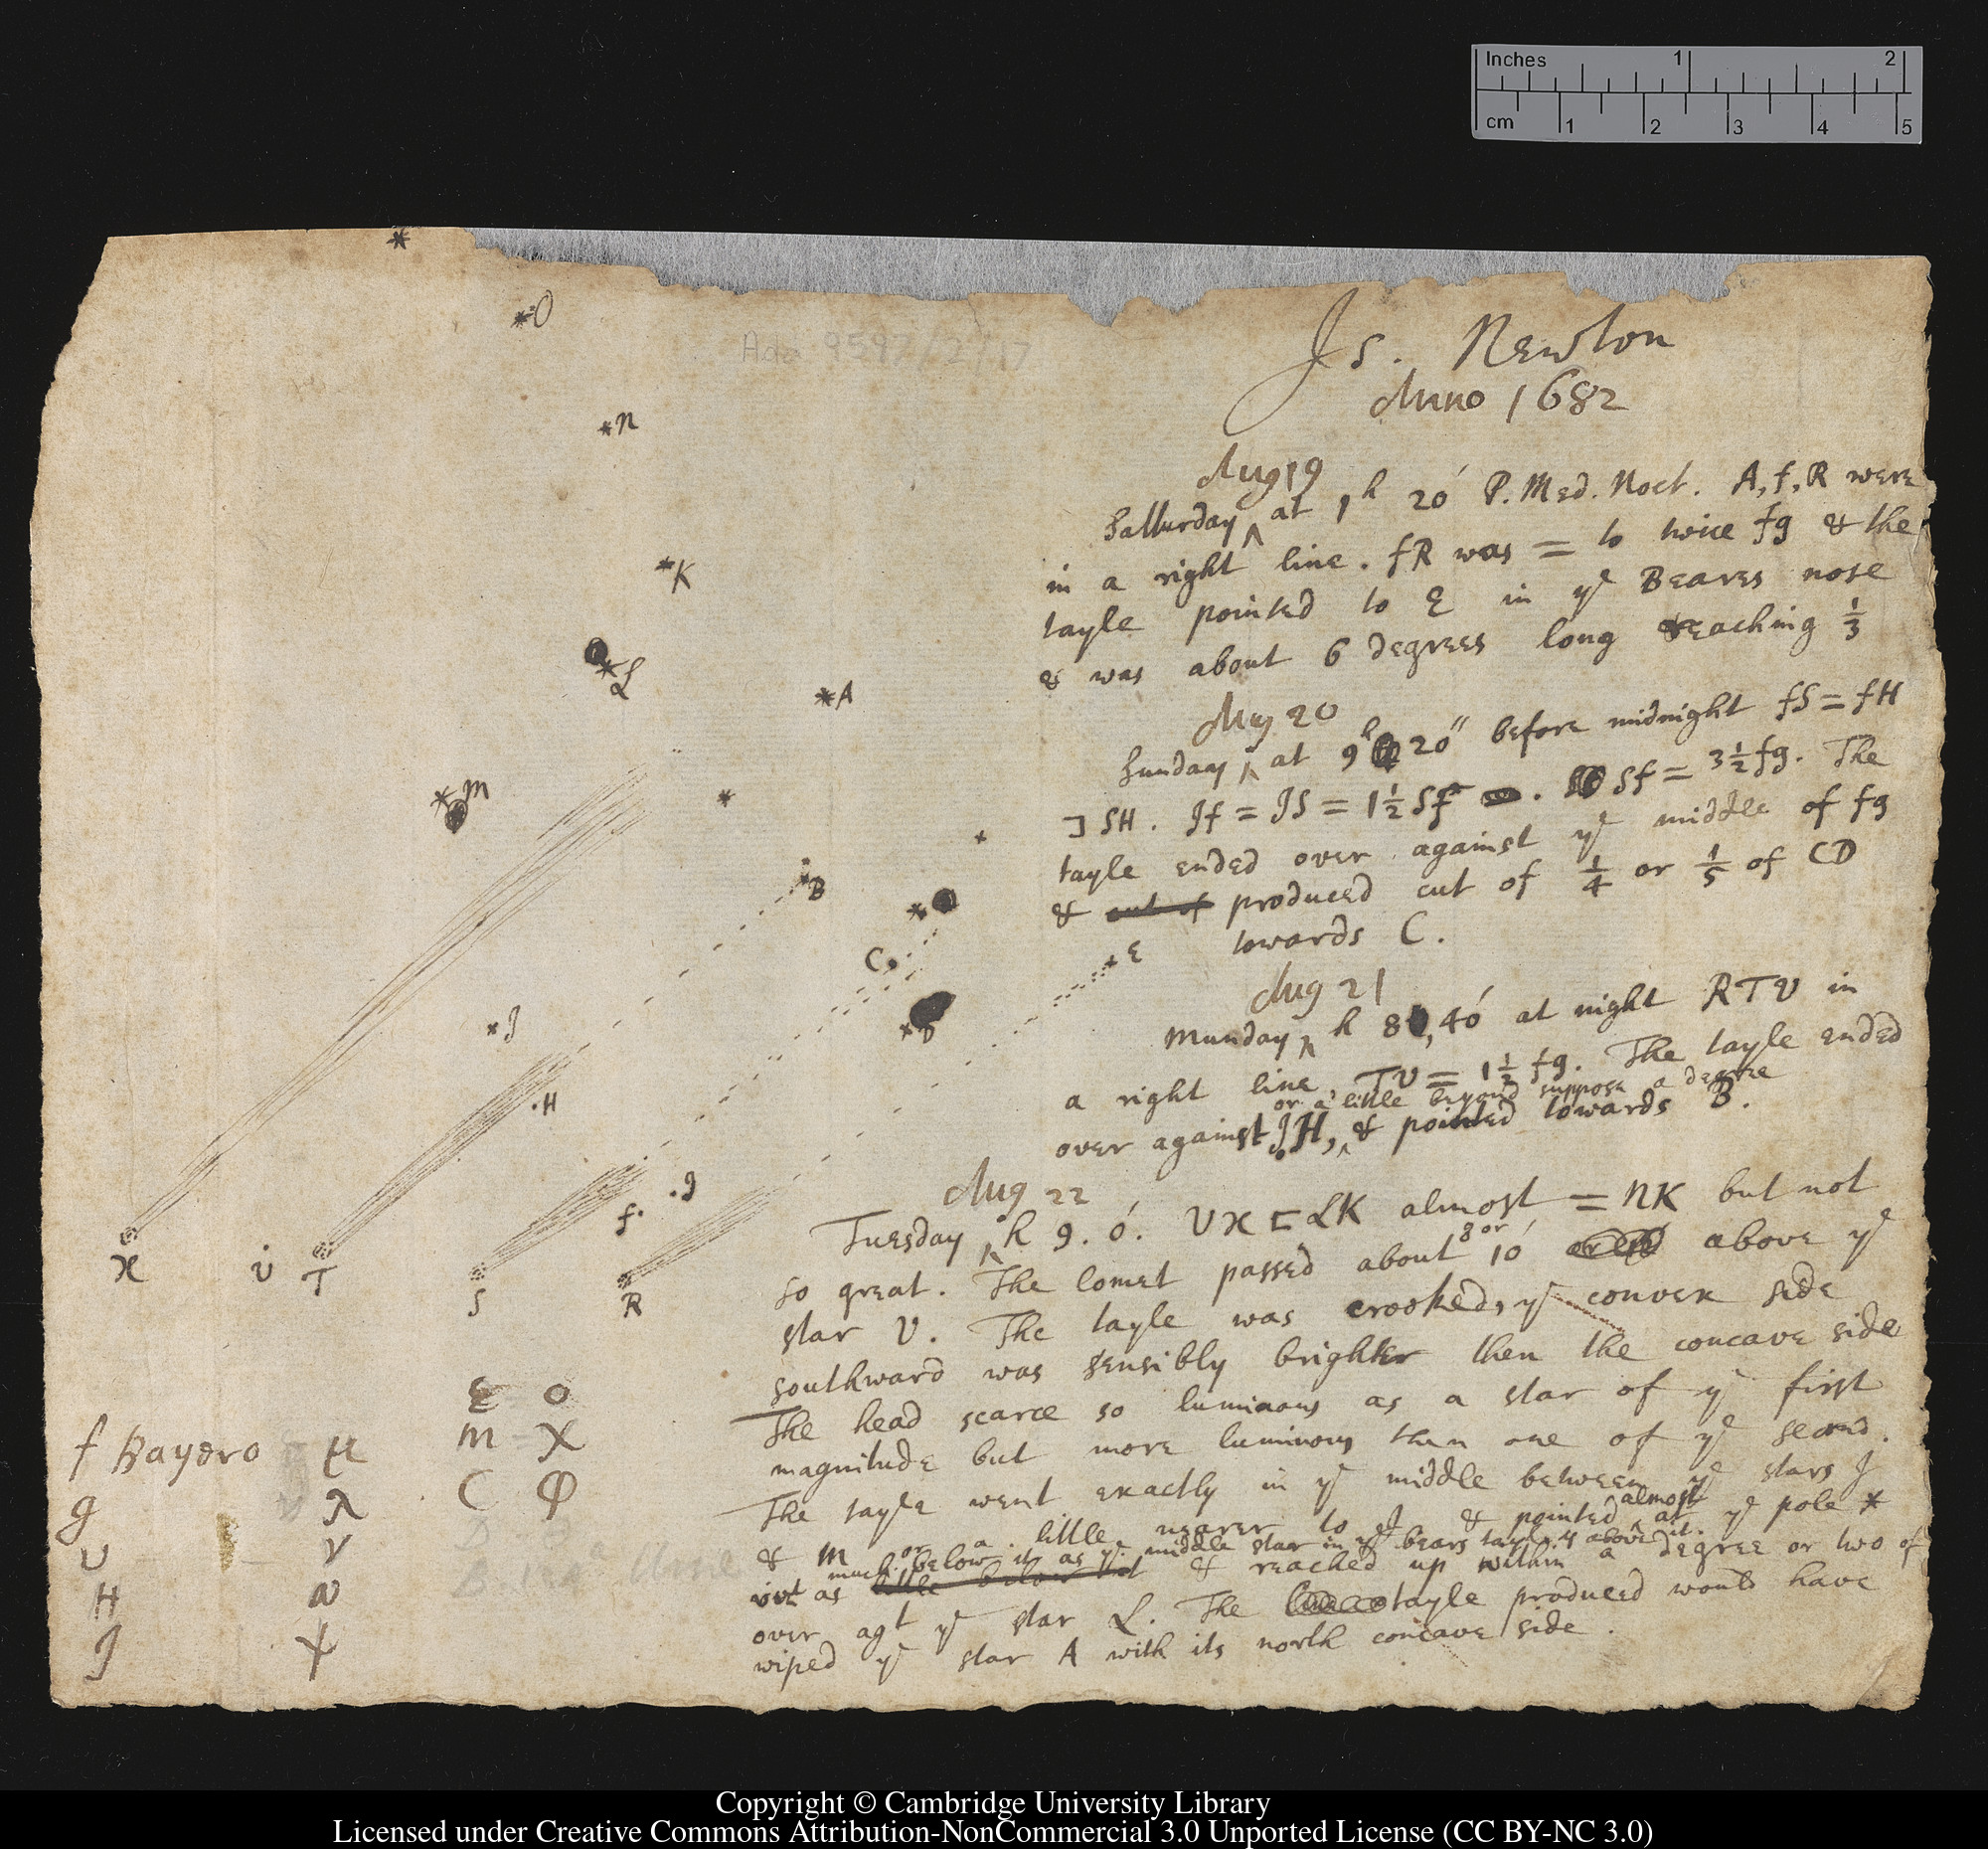 Inches 1 2
cm 1 2 3 4 5
*
* O
Add. 959 /2/17
* N
* K
* L
* A
* M
*
B
C
E
D
* J
H
f
g
X
V
T
S
R
Is. Newton
Anno 1682
Aug 19
Satturday ^ at 1h 20' P. Med. Noct. A, f, R were
in a right line. fR was = to twice fg & the
tayle pointed to E in ye Beares nose
& was about 6 degrees long reaching 1/3
Aug 20
Sunday ^ at 9h 20" before midnight fS = fH
⊐ SH. Jf = JS = 1 1/2 Sf. Sf = 3 1/2 fg. The
tayle ended over against ye middle of fg
& cut of produced cut of 1/4 or 1/5 of CD
towards C.
Aug 21
Munday ^ h 8, 40' at night R T V in
a right line, TV = 1 1/2 fg. The tayle ended
or a little beyond suppose a degree
over against JH, ^ & pointed towards B.
Aug 22
Tuesday ^ h 9. 0'. VX ⊏ LK almost = NK but not
8 or
so great. The Comet passed about 10' above ye
star V. The tayle was crooked, ye convex side
southward was sensibly brighter then the concave side
The head scarce so luminous as a star of ye first
magnitude but more luminous then one of ye second.
The tayle went exactly in ye middle between ye stars J
almost
& M or a little nearer to J & pointed ^ at ye pole *
much below it as ye middle star in ye bears tayle is above it.
vizt as little below it & reached up within a degree or two of
over agt ye star L. The tayle produced would have
wiped ye star A with its north concave side.
E o
f Bayero μ m χ
g λ C φ
V ν
H ω
J ψ
Copyright © Cambridge University Library
Licensed under Creative Commons Attribution-NonCommercial 3.0 Unported License (CC BY-NC 3.0)